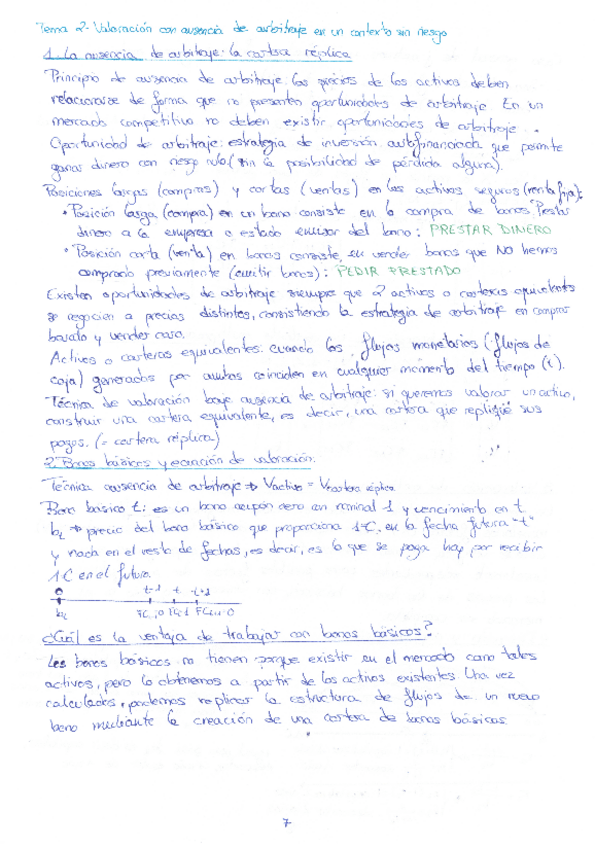 Tema 2- Valoración con ausencia de arbitraje en un contexto sin riesgo
1. La ausencia de arbitraje: la cartera réplica
Principio de ausencia de arbitraje: los precios de los activos deben
relacionarse de forma que no presenten oportunidades de arbitraje. En un
mercado competitivo no deben existir oportunidades de arbitraje.
Oportunidad de arbitraje: estrategia de inversión autofinanciada que permite
ganar dinero con riesgo nulo (sin la posibilidad de pérdida alguna).
Posiciones largas (compras) y cortas (ventas) en los activos seguros (renta fija):
• Posición larga (compra) en un bono consiste en la compra de bonos. Prestar
dinero a la empresa o estado emisor del bono: PRESTAR DINERO
• Posición corta (venta) en bonos consiste, en vender bonos que NO hemos
comprado previamente (emitir bonos): PEDIR PRESTADO
Existen oportunidades de arbitraje siempre que 2 activos o carteras equivalentes
se negocien a precios distintos, consistiendo la estrategia de arbitraje en comprar
barato y vender caro.
Activos o carteras equivalentes: cuando los flujos monetarios (flujos de
caja) generados por ambas coinciden en cualquier momento del tiempo (t).
Técnica de valoración bajo ausencia de arbitraje: si queremos valorar un activo,
construir una cartera equivalente, es decir, una cartera que replique sus
pagos. (= cartera réplica)
2. Bonos básicos y ecuación de valoración.
Técnica ausencia de arbitraje → Vactivo = Vcartera réplica
Bono básico t: es un bono cupón cero con nominal 1 y vencimiento en t
bt → precio del bono básico que proporciona 1€ en la fecha futura "t"
y nada en el resto de fechas, es decir, es lo que se paga hoy por recibir
1€ en el futuro.
0 t-1 t t+1
bt
¿Cuál es la ventaja de trabajar con bonos básicos?
Los bonos básicos no tienen porque existir en el mercado como tales
activos, pero lo obtenemos a partir de los activos existentes. Una vez
calculados, podemos replicar la estructura de flujos de un nuevo
bono mediante la creación de una cartera de bonos básicos.
7